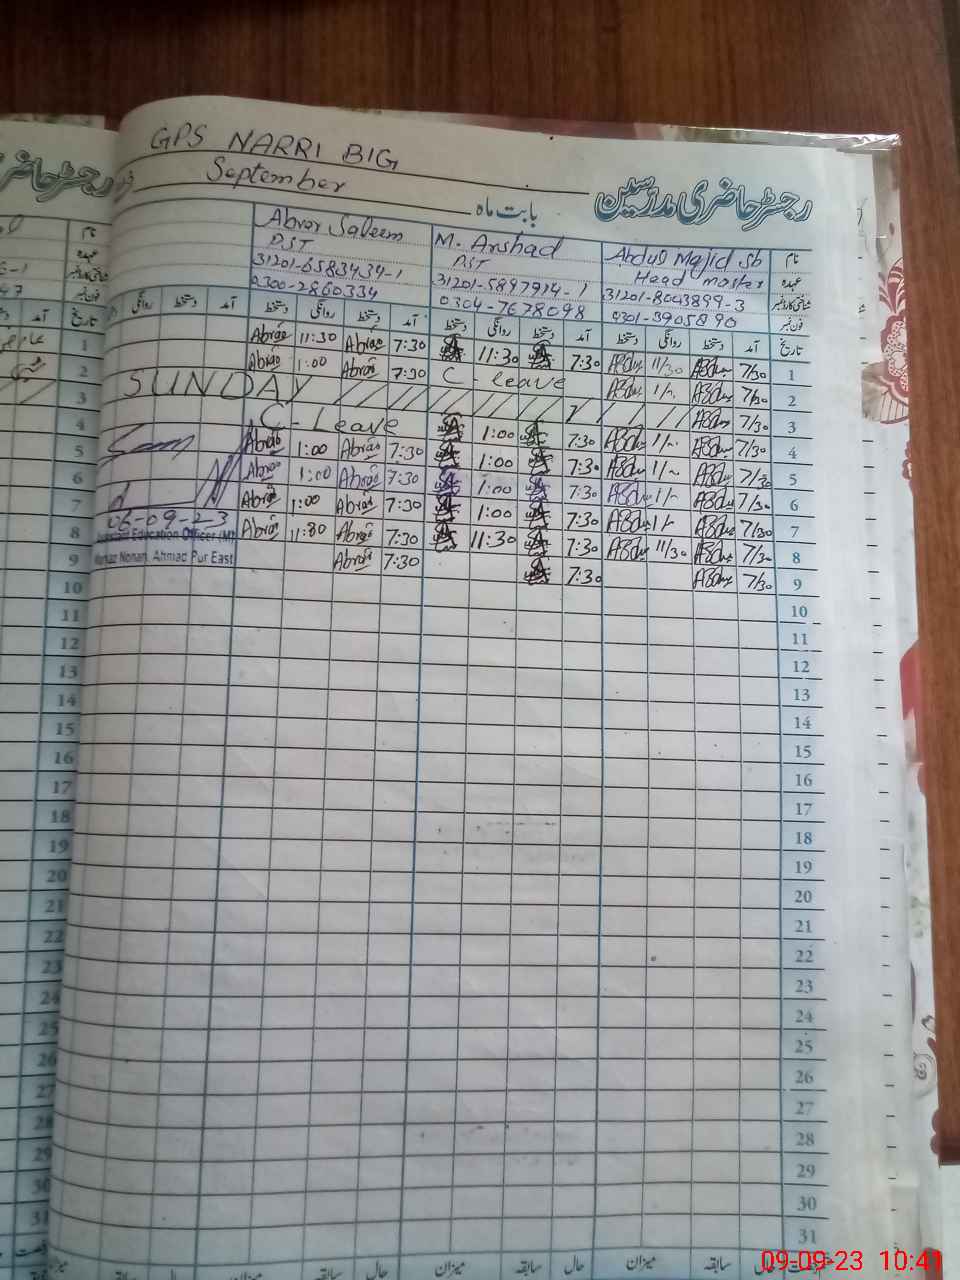 GPS NARRI BIG
September بابت ماہ
رجسٹر حاضری مدرسین
Abrar Saleem M. Arshad Abdul Majid Sb نام
PST PST Head master عہدہ
31201-6583434-1 31201-5897914-1 31201-8043899-3 شناختی کارڈ نمبر
0300-2860334 0304-7678098 0301-3905890 فون نمبر
روانگی دستخط آمد دستخط روانگی دستخط آمد دستخط روانگی دستخط آمد دستخط روانگی دستخط آمد تاریخ
Abrar 11:30 Abrar 7:30 11:30 7:30 11/30 7/30 1
Abrar 1:00 Abrar 7:30 C-leave 7/30 2
SUNDAY 7/30 3
C-Leave 1:00 7:30 7/30 4
Abrar 1:00 Abrar 7:30 1:00 7:30 7/30 5
Abrar 1:00 Abrar 7:30 1:00 7:30 7/30 6
Abrar 1:00 Abrar 7:30 1:00 7:30 7/30 7
06-09-23
Abrar 11:30 Abrar 7:30 11:30 7:30 11/30 7/30 8
Assistant Education Officer (M)
Markaz Nonari, Ahmad Pur East
Abrar 7:30 7:30 7/30 9
10
11
12
13
14
15
16
17
18
19
20
21
22
23
24
25
26
27
28
29
30
31
میزان حال سابقہ میزان حال سابقہ میزان حال سابقہ
09-09-23 10:41